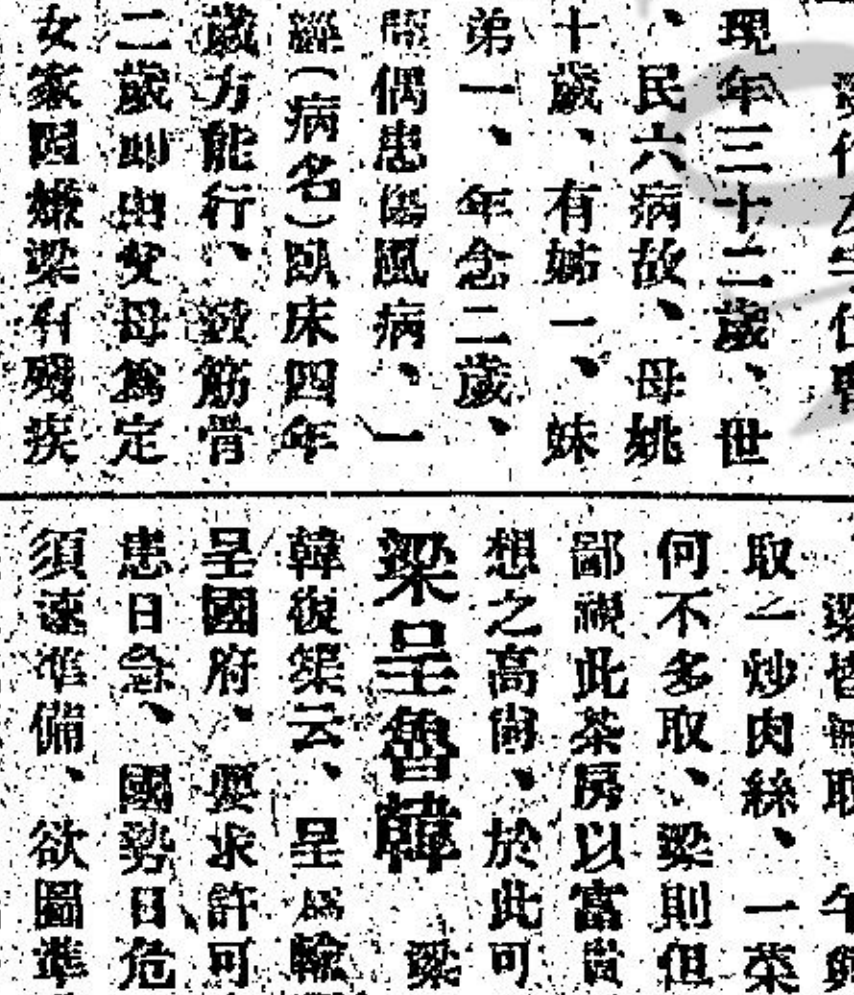 現年三十二歲、世
、民六病故、母姚
十歲、有姊一、妹
弟一、年念二歲、
偶患傷風病、一
經(病名)臥床四年
歲方能行、致筋骨
二歲即由父母為定
女家因嫌梁有殘疾
梁皆無取
取一炒肉絲、一菜
何不多取、梁則但
鄙視此茶房以富貴
想之高尚、於此可
梁呈魯韓 梁
韓復榘云、呈為
呈國府、要求許可
患日急、國勢日危
須速準備、欲圖準